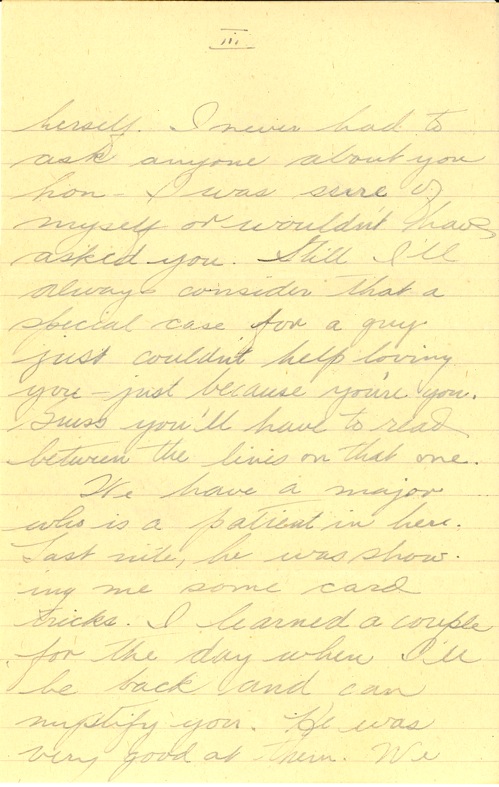 iii
herself. I never had to
ask anyone about you
hon - I was sure of
myself or wouldn't have
asked you. Still I'll
always consider that a
special case for a guy
just couldn't help loving
you - just because you're you.
Guess you'll have to read
between the lines on that one.
We have a major
who is a patient in here.
Last nite, he was show-
ing me some card
tricks. I learned a couple
for the day when I'll
be back and can
mystify you. He was
very good at them. We